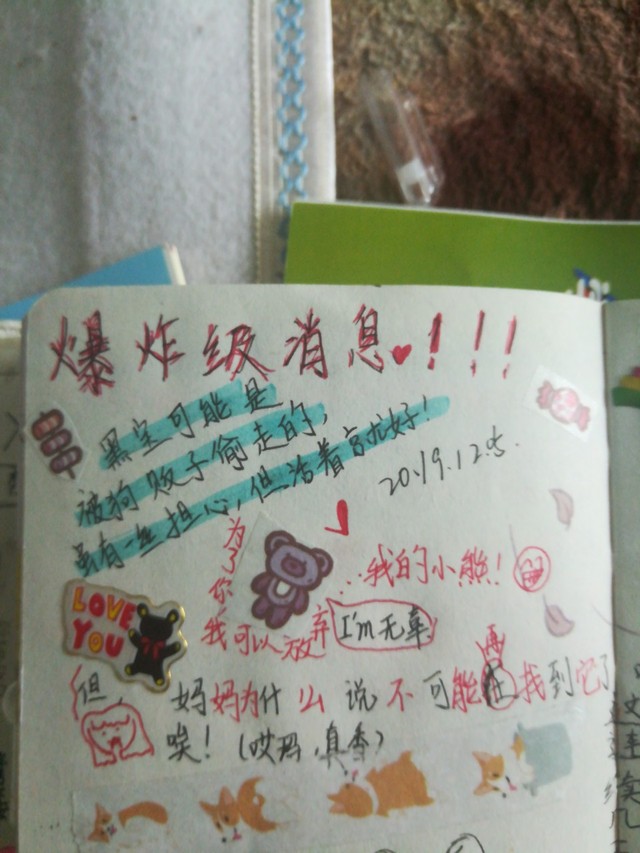 爆炸级消息!!!
黑宝可能是
被狗贩子偷走的,
虽有一丝担心,但活着就好!
2019.12.5.
为了你
...我的小熊!
LOVE
YOU
我可以放弃
I'm无辜
但
妈妈为什么说不可能再找到它了
唉!(哎玛,真香)